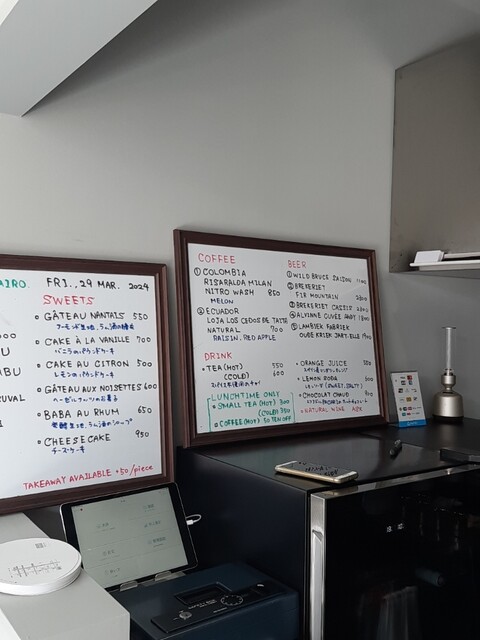 AIRO. FRI., 29 MAR. 2024
SWEETS
GÂTEAU NANTAIS 550
CAKE À LA VANILLE 700
バニラのパウンドケーキ
CAKE AU CITRON 500
レモンのパウンドケーキ
GÂTEAU AUX NOISETTES 600
ヘーゼルナッツのお菓子
BABA AU RHUM 650
CHEESECAKE 950
チーズケーキ
TAKEAWAY AVAILABLE +50/piece
COFFEE
① COLOMBIA
RISARALDA MILAN
NITRO WASH 850
MELON
② ECUADOR
LOJA LOS CEDOS DE TAITE
NATURAL 700
RAISIN, RED APPLE
DRINK
TEA (HOT) 550
(COLD) 600
LUNCHTIME ONLY
SMALL TEA (HOT) 300
(COLD) 350
COFFEE (HOT) 50 YEN OFF
BEER
① WILD BRUCE SAISON
② BREKERIET
FIR MOUNTAIN
③ BREKERIET CASSIS
④ ALVINNE CUVÉE ANDY
⑤ LAMBIEK FABRIEK
OUDE KRIEK JART-ELLE
ORANGE JUICE
LEMON SODA
CHOCOLAT CHAUD
NATURAL WINE ASK